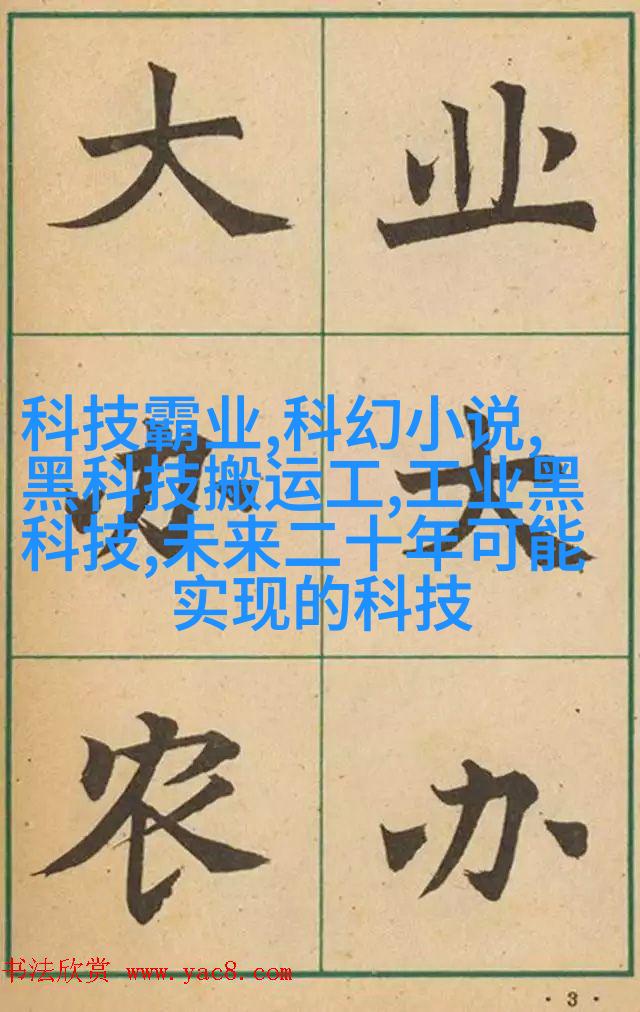 大办农
业大办
科技霸业,科幻小说,
黑科技搬运工,工业黑
科技,未来二十年可能
实现的科技
书法欣赏 www.yac8.com
·3·